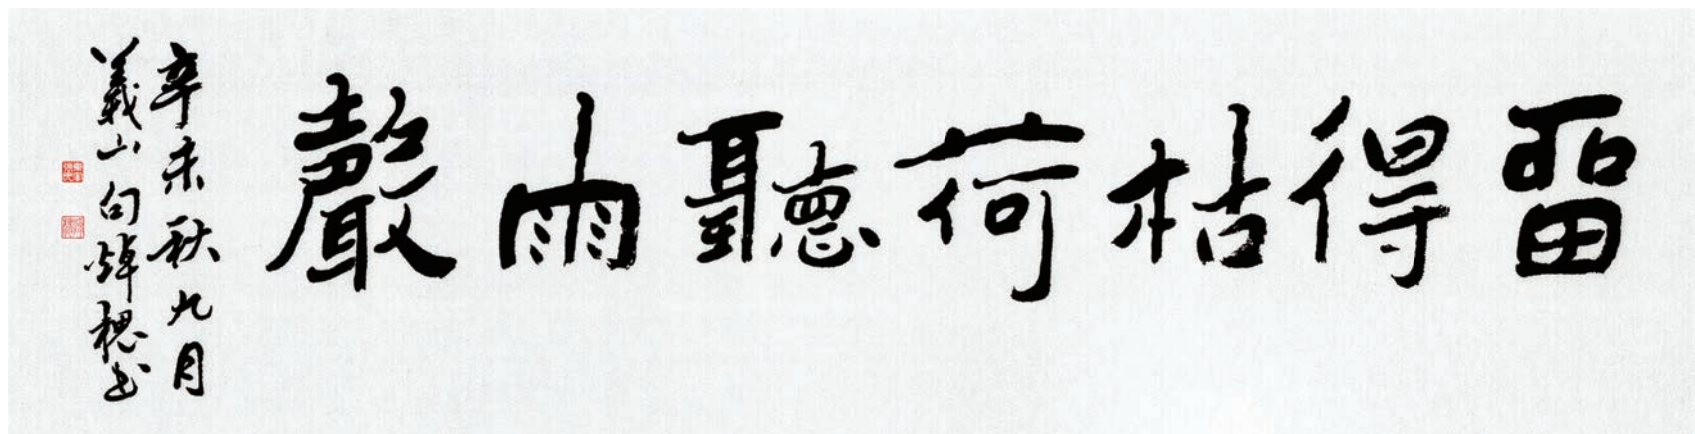 留得枯荷聽雨聲
辛未秋九月
義山句焯槐書